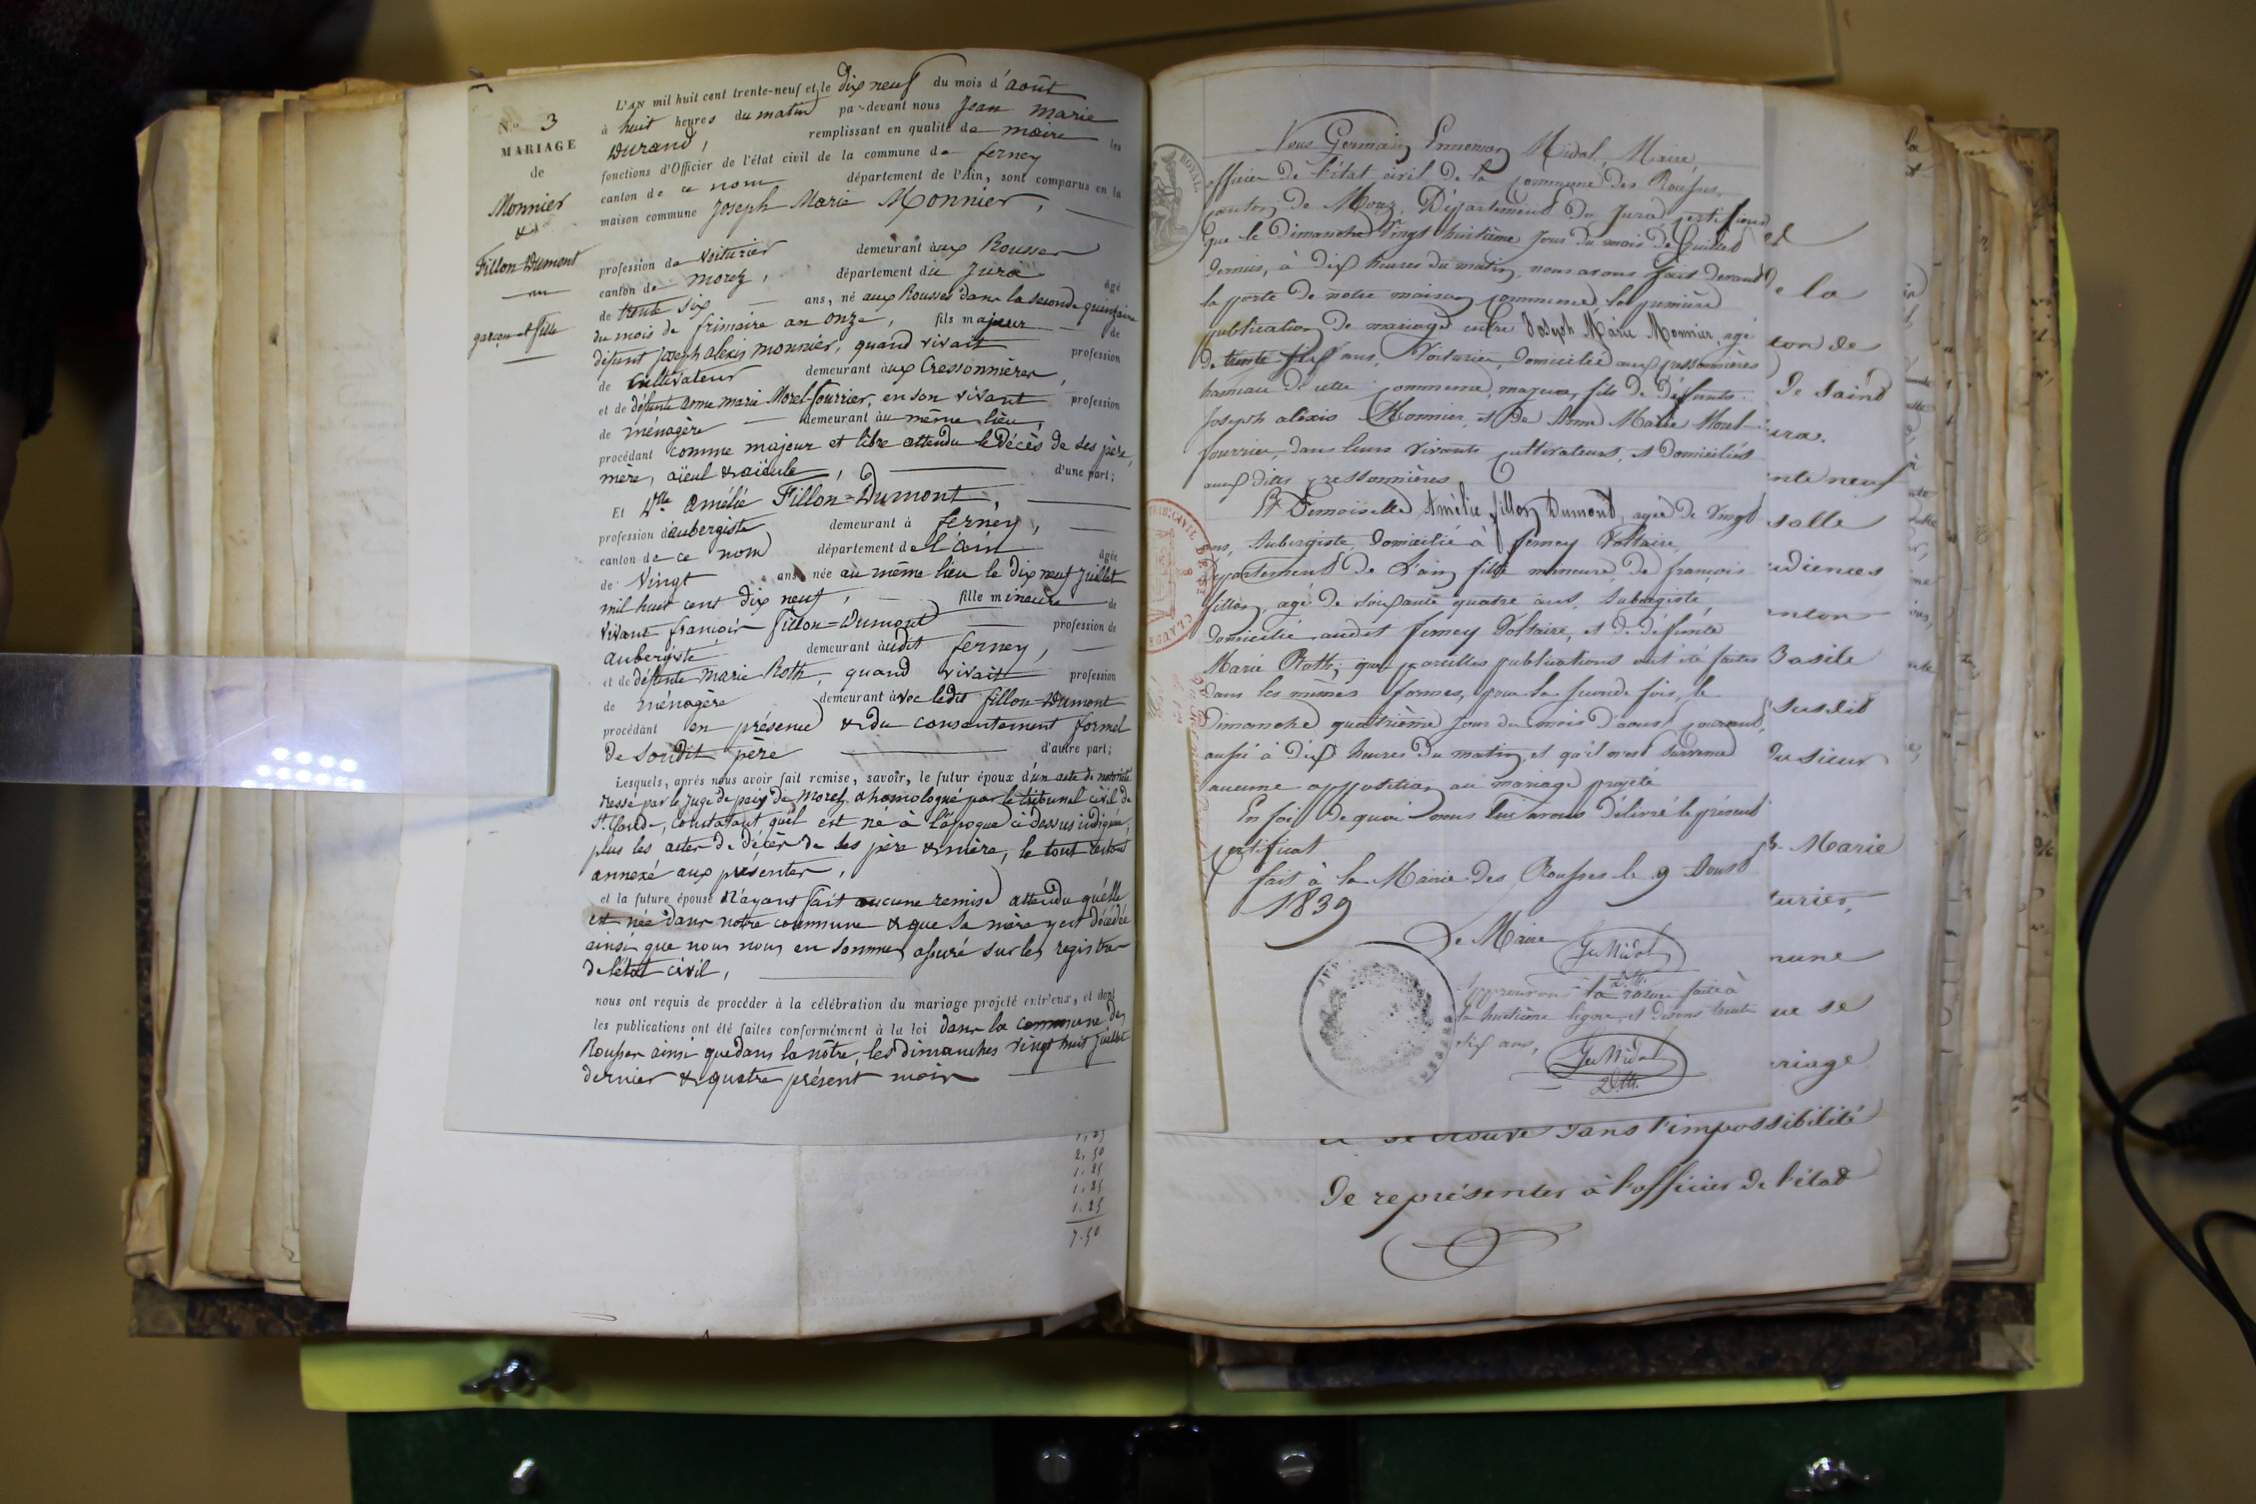 N.o 3
MARIAGE
de
Monnier
&
Fillon-Dumont
garçon et fille
L'AN mil huit cent trente-neuf et le dix neuf du mois d'août
à huit heures du matin par-devant nous Jean Marie
Durand, remplissant en qualité de maire les
fonctions d'Officier de l'état civil de la commune de ferney
canton de ce nom département de l'Ain, sont comparus en la
maison commune Joseph Marie Monnier,
profession de voiturier demeurant aux Rousses
canton de Morez, département du Jura âgé
de trente six ans, né aux Rousses dans la seconde quinzaine
du mois de frimaire an onze, fils majeur de
défunt Joseph alexis monnier, quand vivait profession
de cultivateur demeurant aux Cressonnières,
et de défunte anne marie Morel-fourrier, en son vivant profession
de ménagère demeurant au même lieu,
procédant comme majeur et libre attendu le décès de ses père,
mère, aïeul & aïeule, d'une part;
Et Dlle amélie Fillon=Dumont,
profession d'aubergiste demeurant à ferney,
canton de ce nom département de l'ain âgée
de vingt ans, née au même lieu le dix neuf juillet
mil huit cent dix neuf, fille mineure de
vivant françois fillon=Dumont profession de
aubergiste demeurant audit ferney,
et de défunte marie Roth, quand vivait profession
de ménagère demeurant avec ledit fillon-Dumont
procédant en présence & du consentement formel
de sondit père d'autre part;
Lesquels, après nous avoir fait remise, savoir, le futur époux d'un acte de notoriété
dressé par le juge de paix de Morez, & homologué par le tribunal civil de
St. Claude, constatant qu'il est né à l'époque ci dessus indiquée,
plus les actes de décès de ses père & mère, le tout restant
annexé aux présentes,
et la future épouse n'ayant fait aucune remise attendu qu'elle
est née dans notre commune & que sa mère y est décédée
ainsi que nous nous en sommes assuré sur les registres
de l'état civil,
nous ont requis de procéder à la célébration du mariage projeté entr'eux, et dont
les publications ont été faites conformément à la loi dans la commune des
Rousses ainsi que dans la nôtre, les dimanches vingt huit juillet
dernier & quatre présent mois
1,25
2,50
1.25
1.25
1.25
7.50
ROYAL
Nous Germain Ennemon Midol, Maire,
officier de l'état civil de la Commune des Rousses,
canton de Morez, Département du Jura certifions
que le dimanche vingt huitième jour du mois de Juillet
dernier, à dix heures du matin, nous avons fait devant
la porte de notre maison commune la première
publication de mariage entre Joseph Marie Monnier, agé
de trente six ans, Voiturier, domicilié aux cressonnières
hameau de cette commune, majeur, fils de défunts
Joseph alexis Monnier, et de Anne Marie Morel
fourrier, dans leurs vivants cultivateurs, et domiciliés
aux dites cressonnières
Et Demoiselle Amélie fillon Dumont, agée de vingt
ans, Aubergiste, domiciliée à ferney Voltaire,
département de l'ain, fille mineure, de françois
fillon, agé de soixante quatre ans, Aubergiste,
domicilié audit ferney Voltaire, et de défunte
Marie Roth; que pareilles publications ont été faites
dans les mêmes formes, pour la seconde fois, le
dimanche quatrième jour du mois d'aoust courant,
aussi à dix heures du matin, et qu'il n'est survenu
aucune opposition au mariage projeté
En foi de quoi nous lui avons délivré le présent
certificat
fait à la Mairie des Rousses le 9 Aoust
1839
Le Maire
Ge Midol
Approuvons la rature faite à
la huitième ligne, et disons trente
six ans,
Ge Midol
e la
ton de
de Saint
ura.
nte neuf
salle
udiences
anton
Basile
susdit
du sieur
h. Marie
turier,
mune
ue se
riage
et se trouve dans l'impossibilité
de représenter à l'officier de l'état